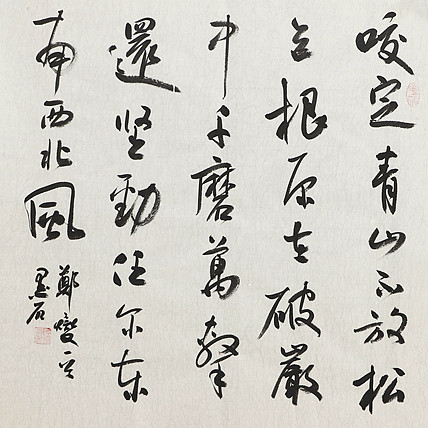 咬定青山不放松
立根原在破巖
中千磨萬擊
還坚勁任尔东
南西北風
鄭燮
墨石